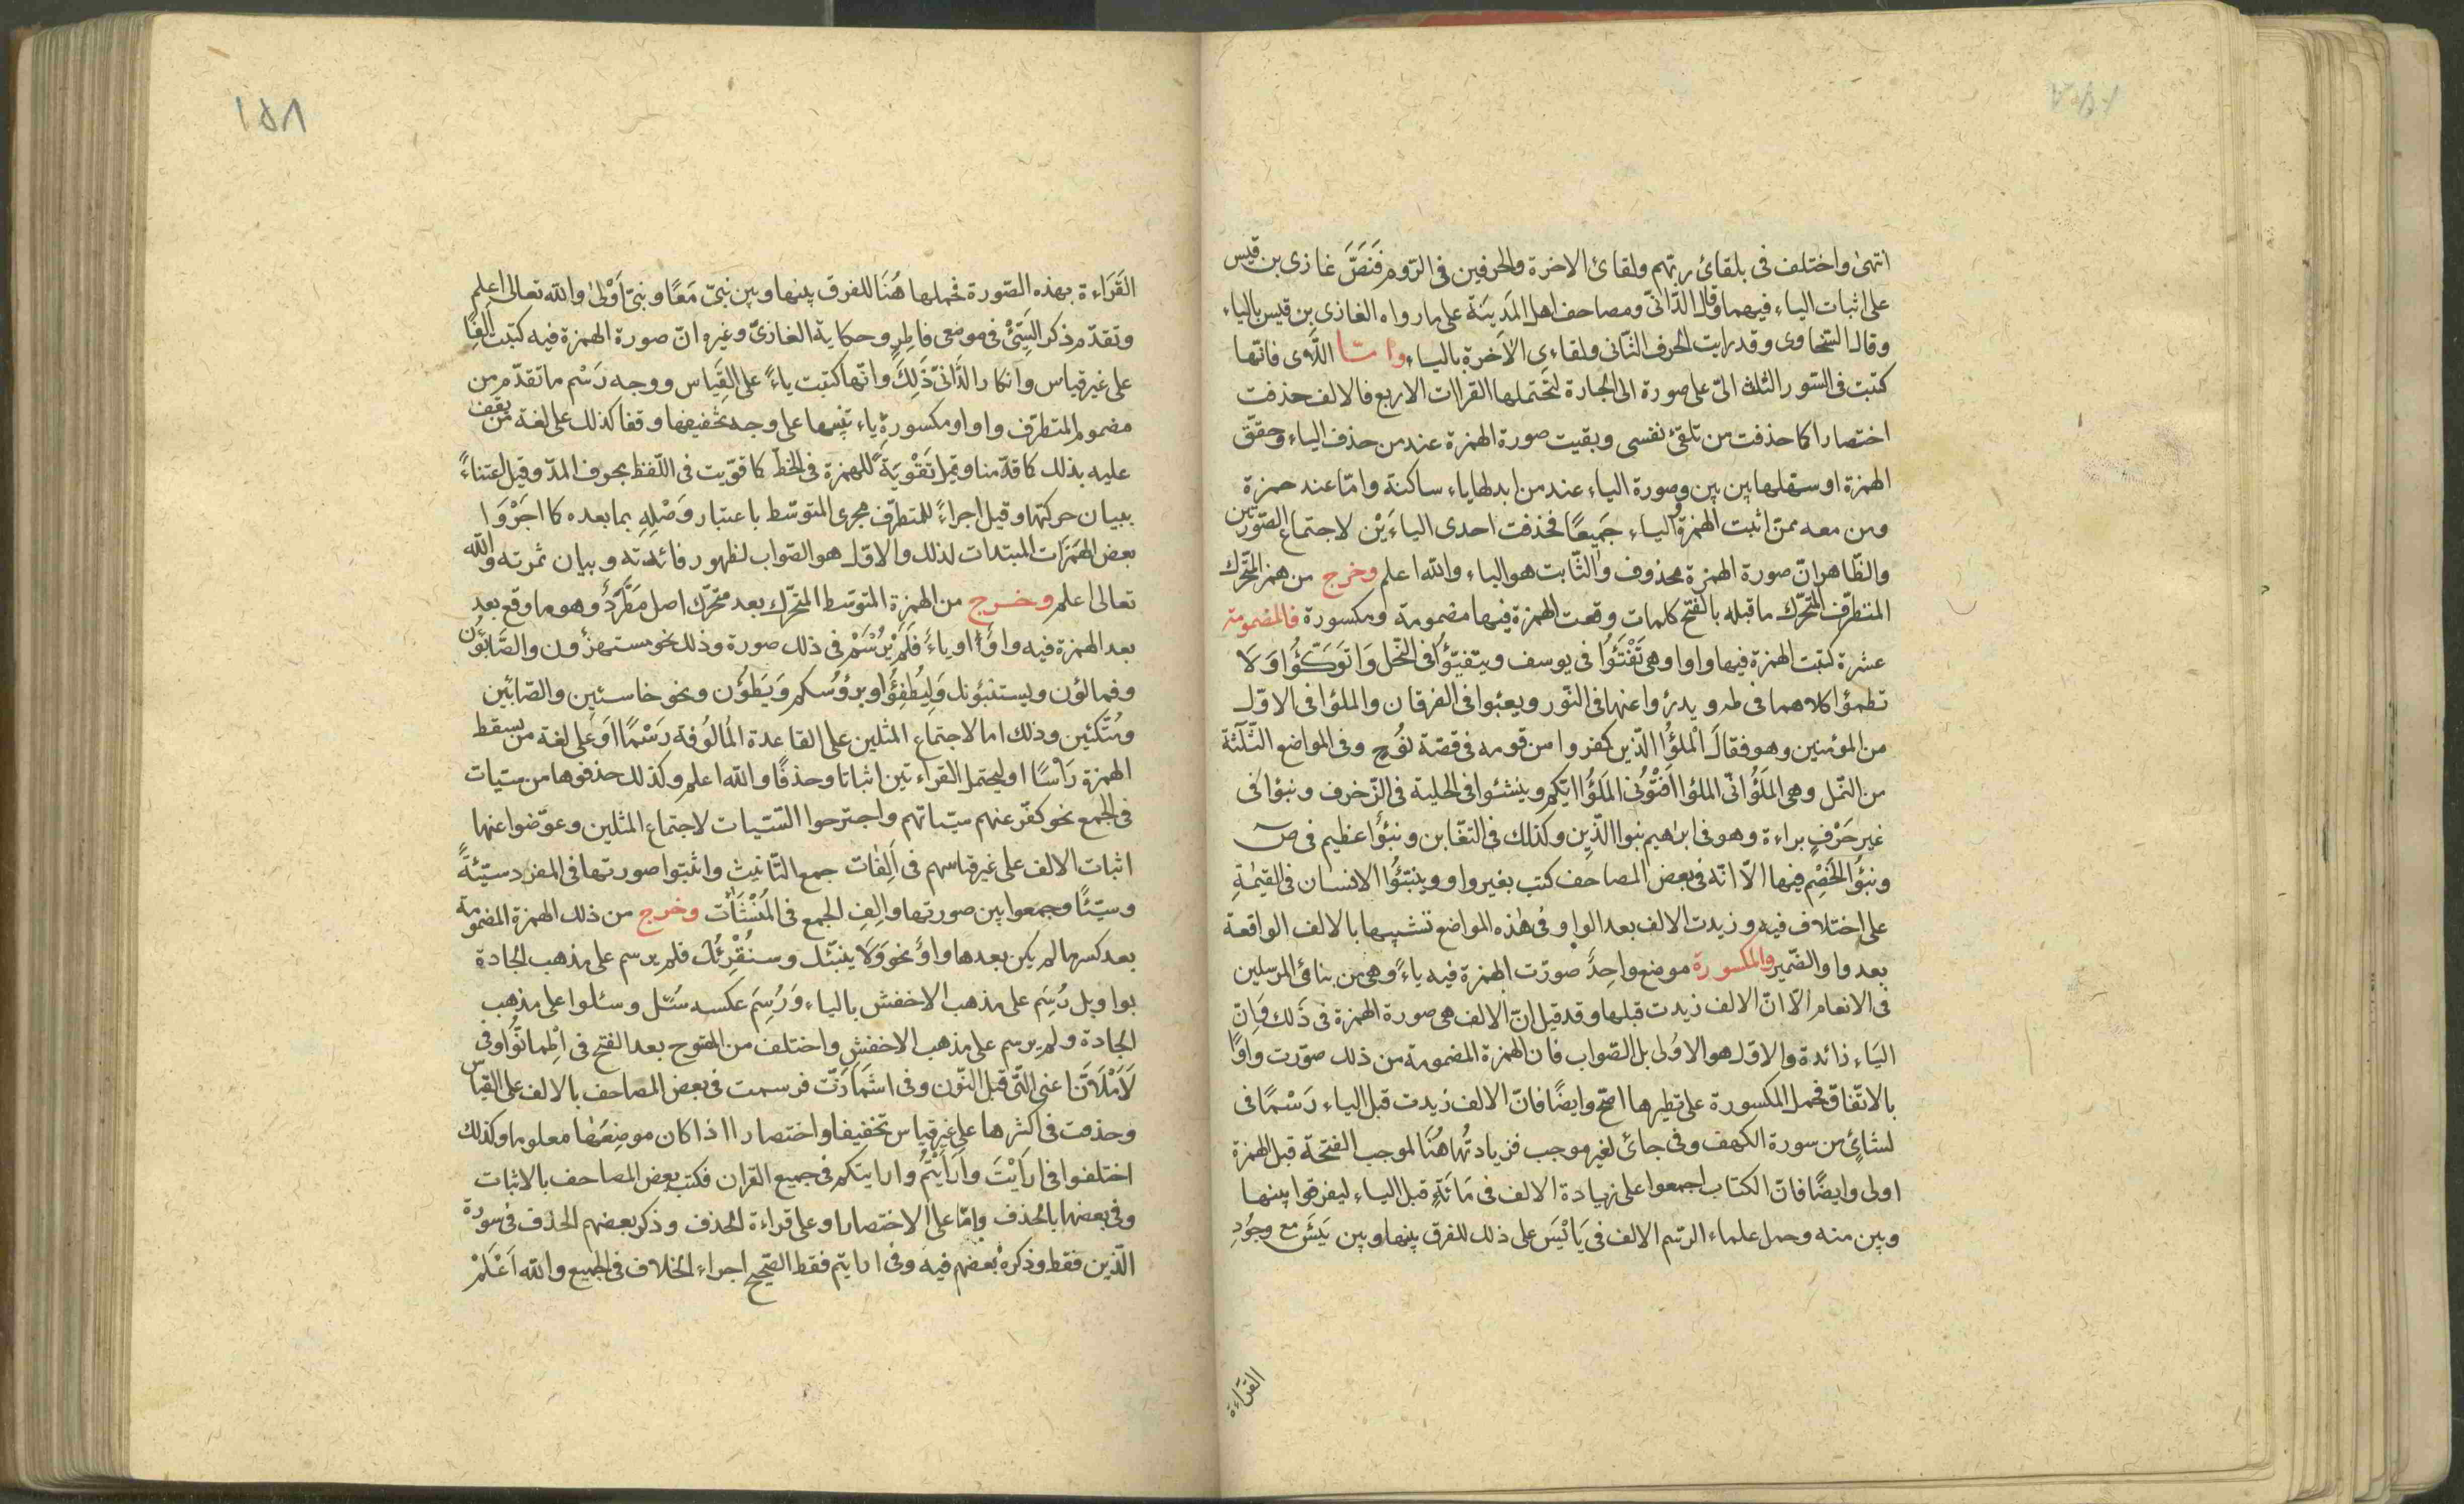 انتهى واختلف فى بلقائ ربهم ولقائ الاخرة والحرفين فى الروم فَنَصَّ غازى بن قيس
على اثبات الياء فيهما وقال الدّانىّ ومصاحف اهل المَدينَة على ما رواه الغازى بن قيس بالياء
وقال السّخاوى وقد رايت الحرف الثّانى ولقاءِى الاَخرة بالياء وامّا اللّاى فانّها
كتبت فى السّور الثلث الىّ على صورة الى الجارة لتحتملها القراات الاربع فالالف حذفت
اختصارا كما حذفت من تلقئ نفسى وبقيت صورة الهمزة عند من حذف الياء وحقق
الهمزة او سهّلها بين بين وصورة الياء عند من ابدلها ياء ساكنة وامّا عند حمزة
ومن معه ممّن اثبت الهمزة والياء جَميعًا فحذفت احدى الياءَيْن لاجتماع الصّورتين
والظّاهر انّ صورة الهمزة محذوف والثّابت هو الياء والله اعلم وخرج من همز المتحّرك
المتطرّف المتحّرك ما قبله بالفتح كلمات وقعت الهمزة فيها مضمومة ومكسورة فالمضمومة
عشرة كتبت الهمزة فيها واوا وهى تَفْتَئَوُا فى يوسف ويتفيّؤا فى النّحل وَاتوَكّؤُا وَلَا
تظمؤا كلاهما فى طه ويدرؤا عنها فى النّور ويعبئوا فى الفرقان والملؤا فى الاوّل
من المؤمنين وهو فقالَ الْملؤُا الّذين كفروا من قومه فى قصّة نُوحٍ وفى المواضع الثَّلَثَة
من النّمل وهى المَلَؤُا انّى الملؤا اَفْتُونى المَلَؤُا ايّكم وينشئوا فى الحلية فى الزّخرف ونبؤا فى
غير حَرْفٍ براءة وهو فى ابرٰهيم نبوا الّذِين وكذلك فى التغّابن ونبؤُا عظيم فى ص
ونبؤُا لخَصْمِ فيها الّا انّه فى بعض المصاحف كتب بغير واو وينبّئؤُا الانسان فى القيٰمةِ
على اختلاف فيه وزيدت الالف بعد الواو فى هٰذه المواضع تشبيها بالالف الواقعة
بعد واو الضّمير والمكسورة موضع واحِدٌ صوّرت الهمزة فيه ياءً وهى من نبائ المرسلين
فى الانعام الّا انّ الالف زيدت قبلها وقد قيل انّ الالف هى صورة الهمزة فى ذَلك وَانّ
اليَاء زائدة والاوّل هو الاَوْلى بل الصّواب فان الهمزة المضمومة من ذلك صوّرت واوًا
بالاتّفاق فحمل المكسورة على نظيرها اصّح وايضًا فانّ الالف زيدت قبل الياء رَسْمًا فى
لشائٍ من سورة الكهف وفى جائ لغير موجب فزيادتُها هُنَا لموجب الفتحة قبل الهمزة
اولى وايضًا فانّ الكتاب اجمعوا على زيادة الالف فى مَائَةٍ قبل الياء ليفرقوا بينها
وبين منه وحمل علماء الرّسم الالف فى يَايْئَس على ذلك للفرق بينها وبين يَئسَ مع وجُودِ
القرَاءة
١٥٨
القَرَاءة بهذه الصّورة فحملها هُنَا للفرق بينها وبين نبىّ مَعًا ونبىّ اَوْلىٰ والله تعالى اعلم
وتقدّم ذكر السَّيّئْ فى موضعى فاطِرٍ وحكاية الغازىّ وغيره انّ صورة الهمزة فيه كتبت اَلِفًا
على غير قياس وانكار الدَّانىّ ذَلِكَ وانّها كتبت ياءً على القيَاس ووجه رَسْم ما تقدّم من
مضموم المتطرّف واوا ومكسورةِ ياء تنبيها على وجه تخفيفها وقفا كذلك على لغة من يقف
عليه بذلك كما قدّمنا وقيل تَقْويَةً للهمزة فى الخطّ كما قوّيت فى اللّفظ بحروف المدّ وقيل اعتناءً
ببيان حركتها وقيل اجراءً للمتطرّف مجرى المتوسّط باعتبار وَصْلِهِ بما بعده كما اجرَوْا
بعض الهَمَزَات المبتدات لذلك والاوّل هو الصّواب لظهور فائدته وبيان ثمرته والله
تعالى اعلم وخرج من الهمزة المتوسّط المتحّرك بعد متحّرك اصل مُطَّرِدٌ وهو ما وقع بعد
بعد الهمزة فيه واوٌ او ياءٌ فَلَمْ يُرْسَمْ فى ذلك صورة وذلك نحو مستهزؤن والصَّابؤُن
وفمالؤن ويستنبؤنك وَلِيُطْفِؤُا وبرؤُسكم وَيَطؤُن ونحو خاسئين والصّابئين
ومُتَّكئين وذلك اما لاجتماع المثلين على القاعدة المالُوفة رَسْمًا اَوْ عَلٰى لغة من يسقط
الهمزة رَاسًا او ليحتمل القراءتين اثباتا وحذفًا والله اعلم وكذلك حذفوها من سيّات
فى الجمع نحو كفّر عنهم سيّاتهم واجترحوا السّيّات لاجتماع المثلين وعوّضوا عنها
اثبات الالف على غير قياسهم فى اَلِفَات جمع التّانيث واثبتوا صورتها فى المفرد سيّئةً
وسيّئًا وجمعوا بين صورتها واَلِفِ الجمع فى المُنْشَئَات وخرج من ذلك الهمزة المضمومة
بعد كسر ما لم يكن بعدها واوٌ نحو وَلَا ينبّئك وسنُقْرِئُكَ فلم يرسم على مذهب الجادة
بواو بل رُسِمَ على مذهب الاخفش بالياء وَرُسِمَ عكسه سُئل وسئلوا على مذهب
الجادة ولم يرسم على مذهب الاخفش واختلف من المفتوح بعد الفتح فى اطمانّوُا وفى
لَاَمْلَاَنَّ اعنى الّتى قبل النّون وفى اشْمَأزّتْ فرسمت فى بعض المصاحف بالالف على القياس
وحذفت فى اكثرها على غير قياس تخفيفا واختصارا اذا كان موضِعُهَا معلوما وكذلك
اختلفوا فى ارَايْتَ وارَايْتُمُ وارايتكم فى جميع القران فكتب بعض المصاحف بالاثبات
وفى بعضها بالحذف وامّا على الاختصار او على قراءة الحذف وذكر بعضهم الحذف فى سورة
الّذين فقط وذكرهُ بعضهم فيه وفى ارايتم فقط الصّحيح اجراء الخلاف فى الجميع والله اَعْلَمْ